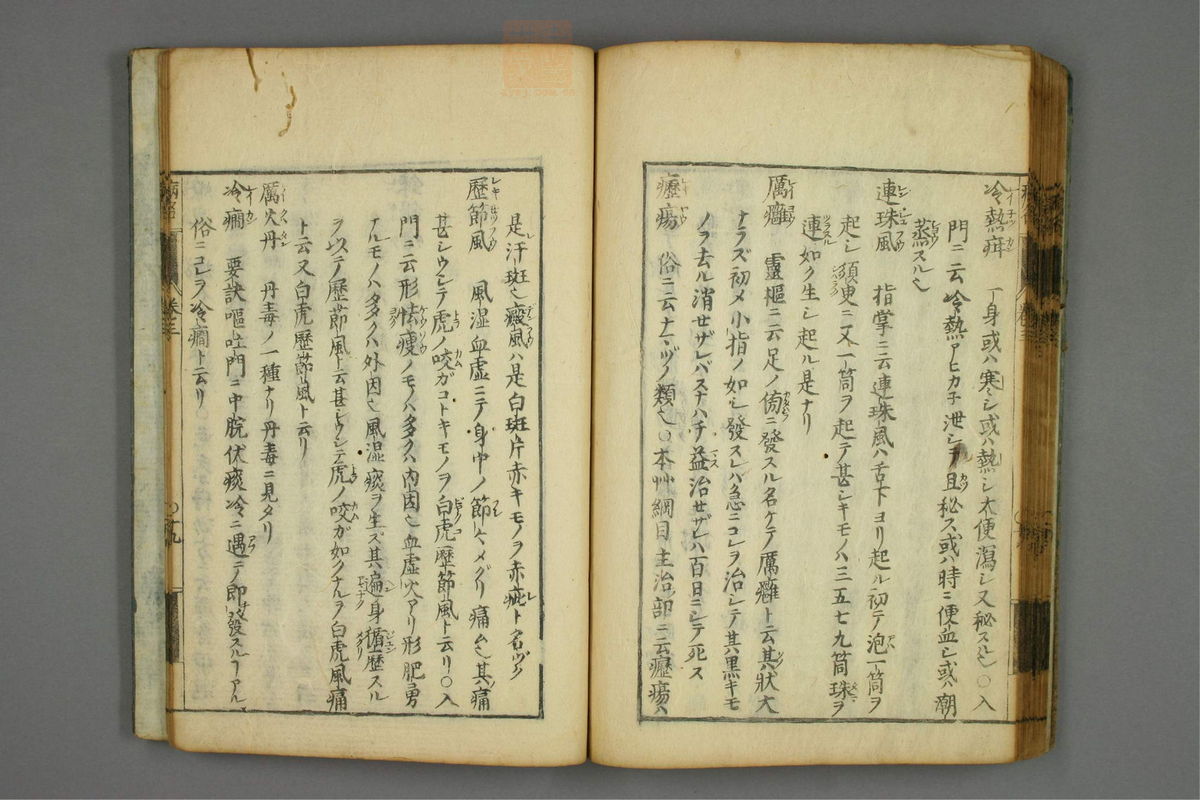 冷熱疳 一身或ハ寒シ或ハ熱シ大便瀉シ又秘スル也○入
門ニ云冷熱アヒカ子泄シテ且秘ス或ハ時ニ便血シ或ハ潮
蒸スル也
連珠風 指掌ニ云連珠風ハ舌下ヨリ起ル初テ泡一箇ヲ
起シ須臾ニ又一箇ヲ起テ甚シキモノハ三五七九箇珠ヲ
連如ク生シ起ル是ナリ
厲癰 靈樞ニ云足ノ傍ニ發スル名ケテ厲癰ト云其狀大
ナラズ初メ小指ノ如シ發スレハ急ニコレヲ治シテ其黒キモ
ノヲ去ル消セザレバスナハチ益治セザレハ百日ニシテ死ス
癧瘍 俗ニ云ナマヅノ類也○本艸綱目主治部ニ云癧瘍ハ
是汗斑也癜風ハ是白斑片赤キモノヲ赤疵ト名ヅク
歷節風 風湿血虚ニテ身中ノ節々メグリ痛ム也其痛
甚シウシテ虎ノ咬ガコトキモノヲ白虎歷節風ト云リ○入
門ニ云形怯瘦ノモノハ多クハ内因也血虚火アリ形肥勇
ナルモノハ多クハ外因也風湿痰ヲ生ズ其遍身循歷スル
ヲ以テ歷節風ト云甚シウシテ虎ノ咬ガ如クナルヲ白虎風痛
ト云又白虎歷節風ト云リ
厲火丹 丹毒ノ一種ナリ丹毒ニ見タリ
冷癇 要訣嘔吐門ニ中脘伏痰冷ニ遇テ即發スルアル
俗ニコレヲ冷癇ト云リ
卷三